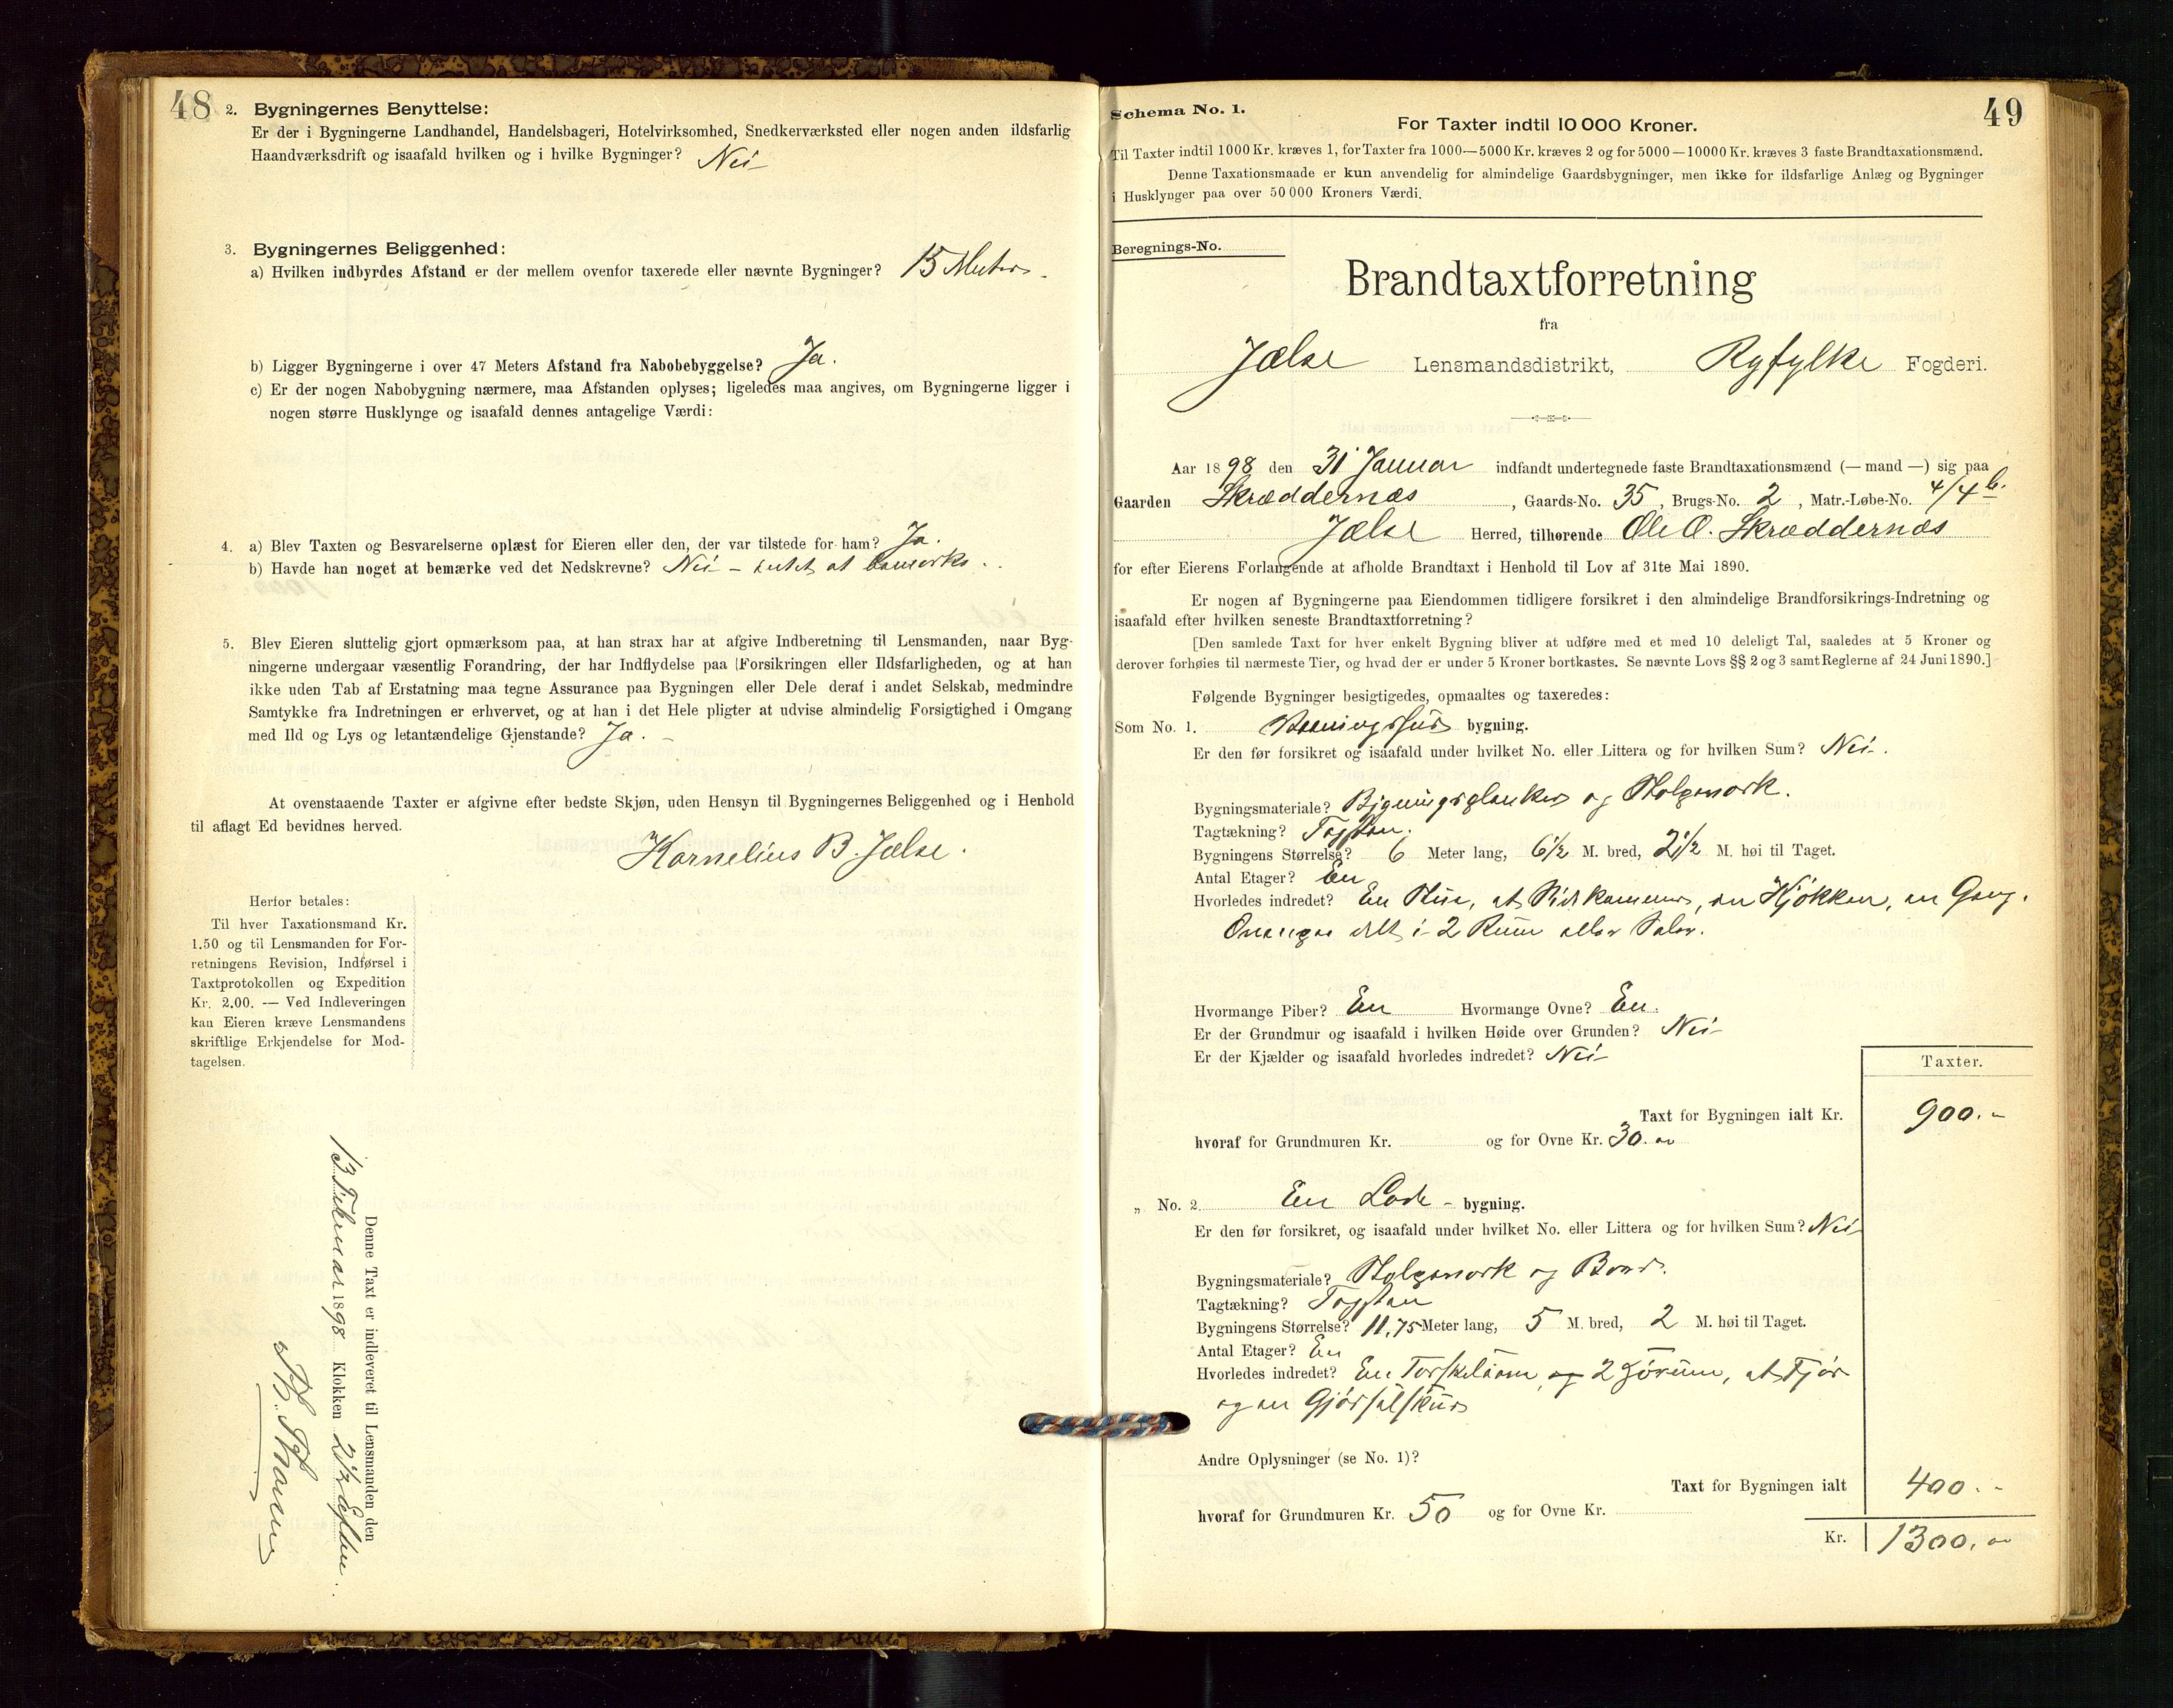 48
2. Bygningernes Benyttelse:
Er der i Bygningerne Landhandel, Handelsbageri, Hotelvirksomhed, Snedkerværksted eller nogen anden ildsfarlig
Haandværksdrift og isaafald hvilken og i hvilke Bygninger? Nei
3. Bygningernes Beliggenhed:
a) Hvilken indbyrdes Afstand er der mellem ovenfor taxerede eller nævnte Bygninger? 15 Meter.
b) Ligger Bygningerne i over 47 Meters Afstand fra Nabobebyggelse? Ja.
c) Er der nogen Nabobygning nærmere, maa Afstanden oplyses; ligeledes maa angives, om Bygningerne ligger i
nogen større Husklynge og isaafald dennes antagelige Værdi:
4. a) Blev Taxten og Besvarelserne oplæst for Eieren eller den, der var tilstede for ham? Ja.
b) Havde han noget at bemærke ved det Nedskrevne? Nei - intet at bemærke.
5. Blev Eieren sluttelig gjort opmærksom paa, at han strax har at afgive Indberetning til Lensmanden, naar Byg-
ningerne undergaar væsentlig Forandring, der har Indflydelse paa Forsikringen eller Ildsfarligheden, og at han
ikke uden Tab af Erstatning maa tegne Assurance paa Bygningen eller Dele deraf i andet Selskab, medmindre
Samtykke fra Indretningen er erhvervet, og at han i det Hele pligter at udvise almindelig Forsigtighed i Omgang
med Ild og Lys og letantændelige Gjenstande? Ja. -
At ovenstaaende Taxter er afgivne efter bedste Skjøn, uden Hensyn til Bygningernes Beliggenhed og i Henhold
til aflagt Ed bevidnes herved.
Kornelius B. Jælse.
Herfor betales:
Til hver Taxationsmand Kr.
1.50 og til Lensmanden for For-
retningens Revision, Indførsel i
Taxtprotokollen og Expedition
Kr. 2.00. — Ved Indleveringen
kan Eieren kræve Lensmandens
skriftlige Erkjendelse for Mod-
tagelsen.
Denne Taxt er indleveret til Lensmanden den
13 Februar 1898 Klokken 2 1/2 Eftm.
49
Schema No. 1.
For Taxter indtil 10 000 Kroner.
Til Taxter indtil 1000 Kr. kræves 1, for Taxter fra 1000—5000 Kr. kræves 2 og for 5000—10000 Kr. kræves 3 faste Brandtaxationsmænd.
Denne Taxationsmaade er kun anvendelig for almindelige Gaardsbygninger, men ikke for ildsfarlige Anlæg og Bygninger
i Husklynger paa over 50 000 Kroners Værdi.
Beregnings-No.
Brandtaxtforretning
fra
Jælse Lensmandsdistrikt, Ryfylke Fogderi.
Aar 1898 den 31 Januar indfandt undertegnede faste Brandtaxationsmænd (— mand —) sig paa
Gaarden Skræddernæs, Gaards-No. 35, Brugs-No. 2, Matr.-Løbe-No. 4/4 b.
Jælse Herred, tilhørende Ole O. Skræddernæs
for efter Eierens Forlangende at afholde Brandtaxt i Henhold til Lov af 31te Mai 1890.
Er nogen af Bygningerne paa Eiendommen tidligere forsikret i den almindelige Brandforsikrings-Indretning og
isaafald efter hvilken seneste Brandtaxtforretning?
[Den samlede Taxt for hver enkelt Bygning bliver at udføre med et med 10 deleligt Tal, saaledes at 5 Kroner og
derover forhøies til nærmeste Tier, og hvad der er under 5 Kroner bortkastes. Se nævnte Lovs §§ 2 og 3 samt Reglerne af 24 Juni 1890.]
Følgende Bygninger besigtigedes, opmaaltes og taxeredes:
Som No. 1. Vaaningshus bygning.
Er den før forsikret og isaafald under hvilket No. eller Littera og for hvilken Sum? Nei.
Bygningsmateriale? Bygningsplanker og Stolpeværk.
Tagtækning? Tagsten.
Bygningens Størrelse? 6 Meter lang, 6 1/2 M. bred, 2 1/2 M. høi til Taget.
Antal Etager? En
Hvorledes indredet? En Stue, et Sidekammer, en Kjøkken, en Gang.
Ovenpaa delt i 2 Rum eller Saler.
Hvormange Piber? En Hvormange Ovne? En.
Er der Grundmur og isaafald i hvilken Høide over Grunden? Nei
Er der Kjælder og isaafald hvorledes indredet? Nei
Taxter.
Taxt for Bygningen ialt Kr. 900.-
hvoraf for Grundmuren Kr. og for Ovne Kr. 30.00
„ No. 2. En Lade - bygning.
Er den før forsikret, og isaafald under hvilket No. eller Littera og for hvilken Sum? Nei
Bygningsmateriale? Stolpeværk og Bord.
Tagtækning? Tagsten
Bygningens Størrelse? 11,75 Meter lang, 5 M. bred, 2 M. høi til Taget.
Antal Etager? En
Hvorledes indredet? En Tærskelaave, og 2 Hørum, et Fjøs
og en Gjødselskur
Andre Oplysninger (se No. 1)?
Taxt for Bygningen ialt 400.-
hvoraf for Grundmuren Kr. 50 og for Ovne Kr.
Kr. 1300.00